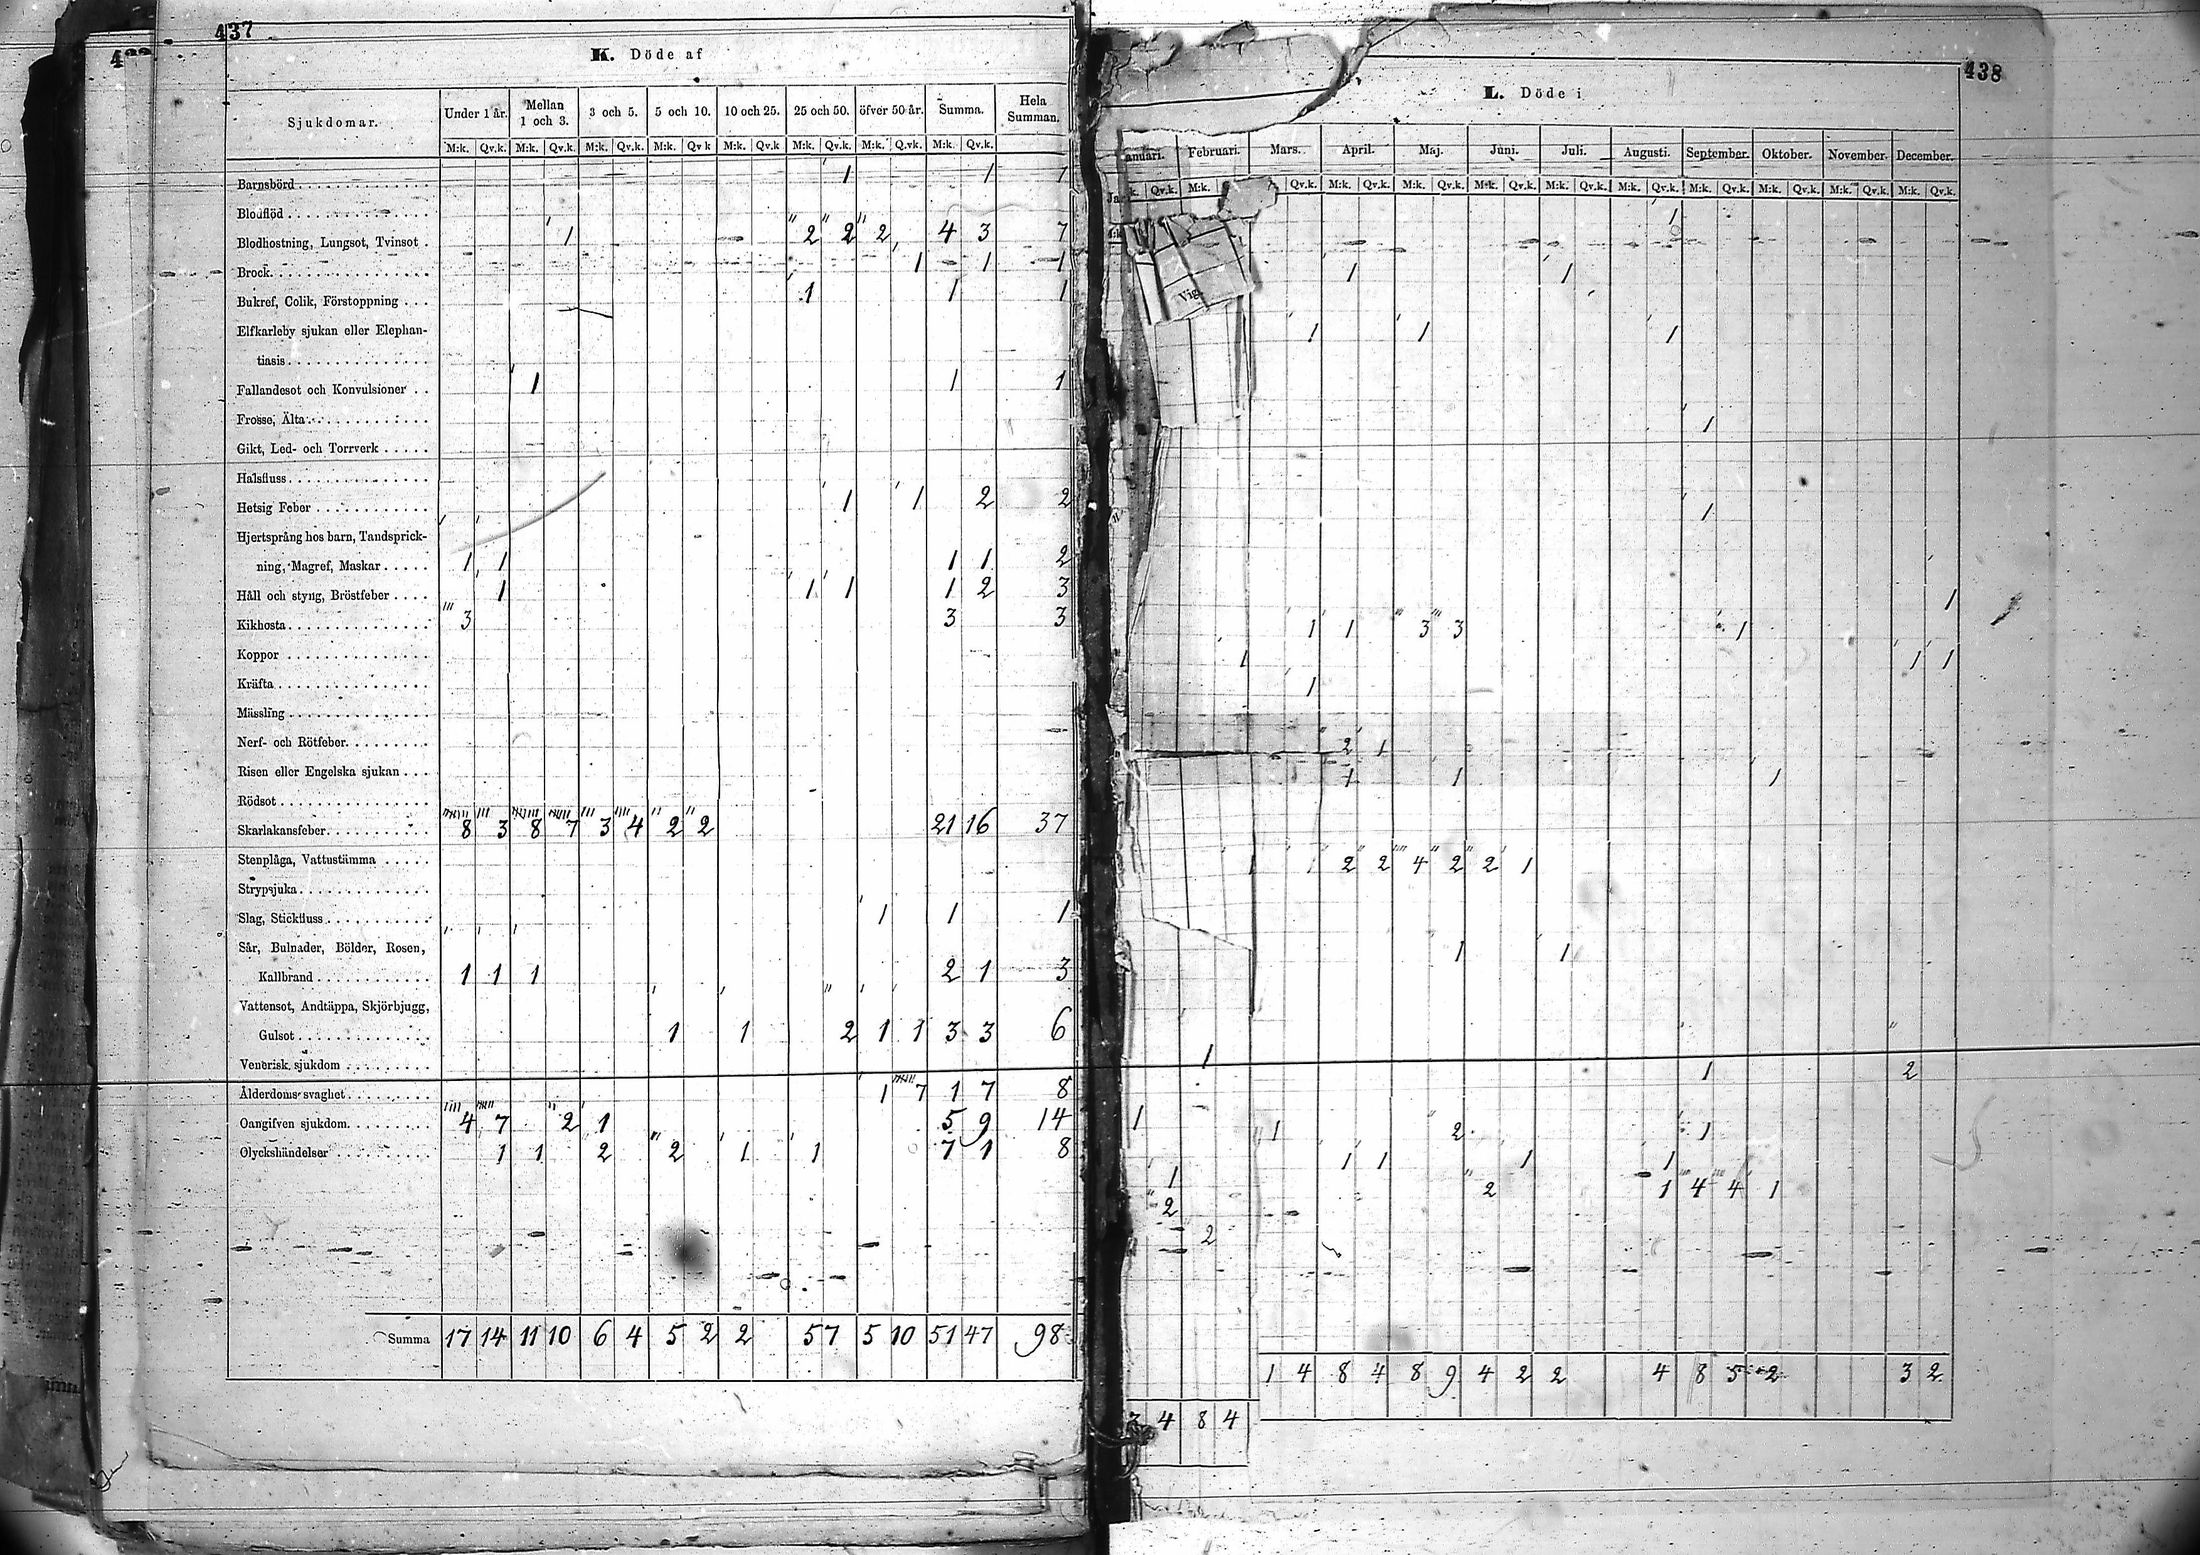 437
K. Döde af
Sjukdomar. Under 1 år. Mellan 1 och 3. 3 och 5. 5 och 10. 10 och 25. 25 och 50. öfver 50 år. Summa. Hela Summan.
M:k. Qv.k. M:k. Qv.k. M:k. Qv.k. M:k. Qv k M:k. Qv.k M:k. Qv.k. M:k. Qv.k. M:k. Qv.k.
Barnsbörd 1 1 1
Blodflöd
Blodhostning, Lungsot, Tvinsot 1 2 2 2 4 3 7
Brock 1 1 1
Bukref, Colik, Förstoppning 1 1 1
Elfkarleby sjukan eller Elephan-
tiasis
Fallandesot och Konvulsioner 1 1 1
Frosse, Älta
Gikt, Led- och Torrverk
Halsfluss
Hetsig Feber 1 1 2 2
Hjertsprång hos barn, Tandsprick-
ning, Magref, Maskar 1 1 1 1 2
Håll och styng, Bröstfeber 1 1 1 1 2 3
Kikhosta 3 3 3
Koppor
Kräfta
Mässling
Nerf- och Rötfeber
Risen eller Engelska sjukan
Rödsot
Skarlakansfeber 8 3 8 7 3 4 2 2 21 16 37
Stenplåga, Vattustämma
Strypsjuka
Slag, Stickfluss 1 1 1
Sår, Bulnader, Bölder, Rosen,
Kallbrand 1 1 1 2 1 3
Vattensot, Andtäppa, Skjörbjugg,
Gulsot 1 1 2 1 1 3 3 6
Venerisk sjukdom
Ålderdoms svaghet 1 7 1 7 8
Oangifven sjukdom 4 7 2 1 5 9 14
Olyckshändelser 1 1 2 2 1 1 7 1 8
Summa 17 14 11 10 6 4 5 2 2 5 7 5 10 51 47 98
438
L. Döde i
anuari. Februari. Mars. April. Maj. Juni. Juli. Augusti. September. Oktober. November. December.
Qv.k. M:k. Qv.k. M:k. Qv.k. M:k. Qv.k. M:k. Qv.k. M:k. Qv.k. M:k. Qv.k. M:k. Qv.k. M:k. Qv.k. M:k. Qv.k. M:k. Qv.k.
1
1 1
Vig
1 1 1
1
1
1
1 1 3 3 1
1 1 1
1
2 1
1 1 1
1 1 2 2 4 2 2 1
1 1
1
1 2
1 1 2 1
1 1 1 1
1 2 1 4 4 1
2
2
1 4 8 4 8 9 4 2 2 4 8 5 2 3 2
4 8 4